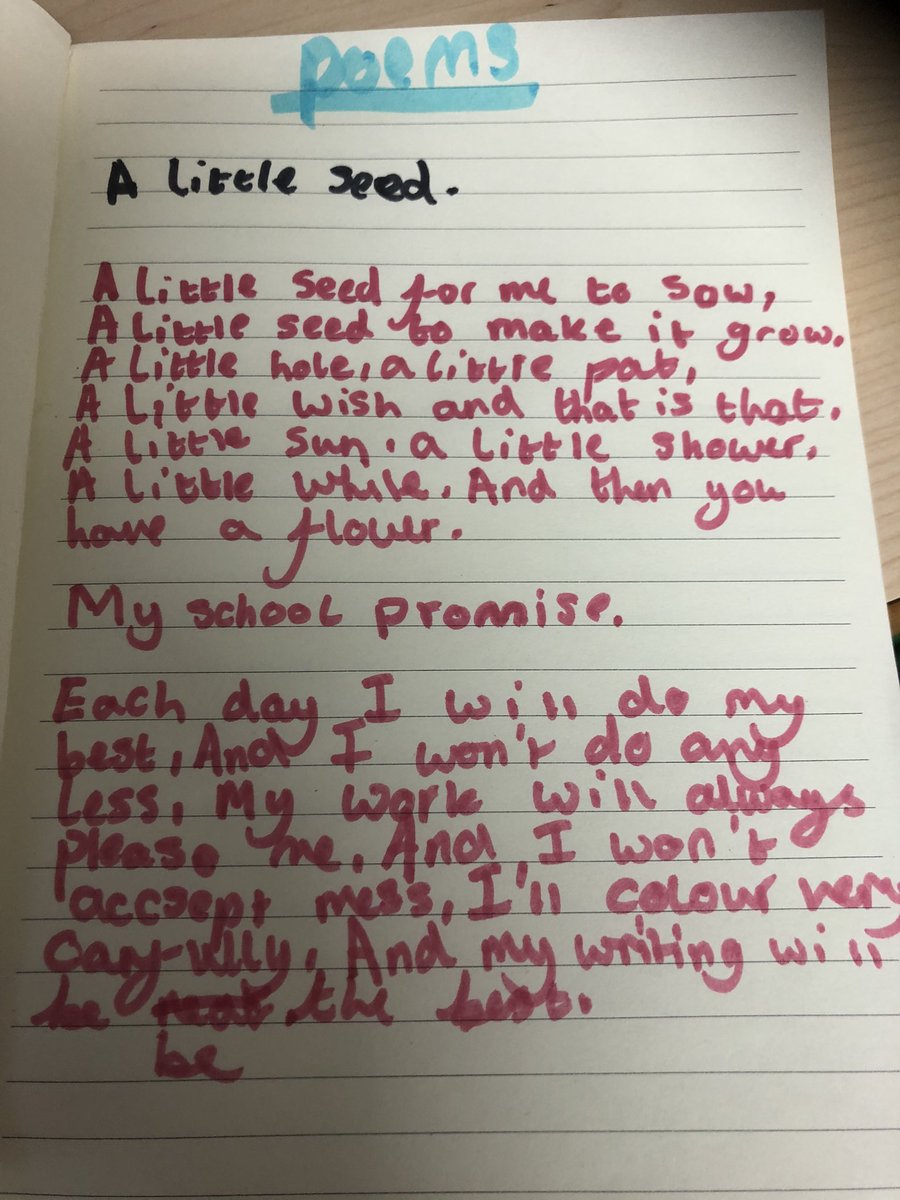 poems
A little seed.
A little seed for me to sow,
A little seed to make it grow.
A little hole, a little pat,
A little wish and that is that.
A little sun, a little shower.
A little while. And then you
have a flower.
My school promise.
Each day I will do my
best, And I won't do any
less, My work will always
please me, And I won't
accsept mess, I'll colour very
be the best.
And my writing will
be